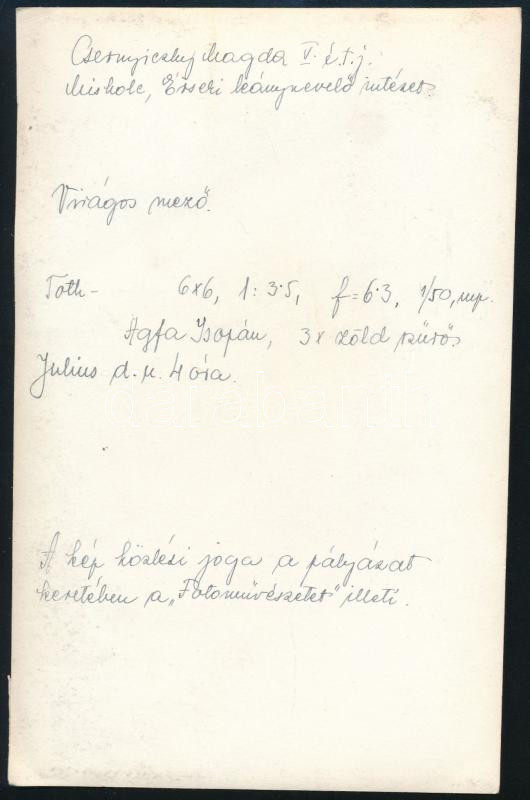 Csernyiczky Magda V. é. t. j.
Miskolc, Érseki leánynevelő intézet.
Virágos mező.
Toth- 6x6, 1:3·5, f=6·3, 1/50, mp.
Agfa Isopán, 3x zöld szűrő
Julius d. u. 4 óra.
A kép közlési joga a pályázat
keretében a „Fotoművészetet" illeti.